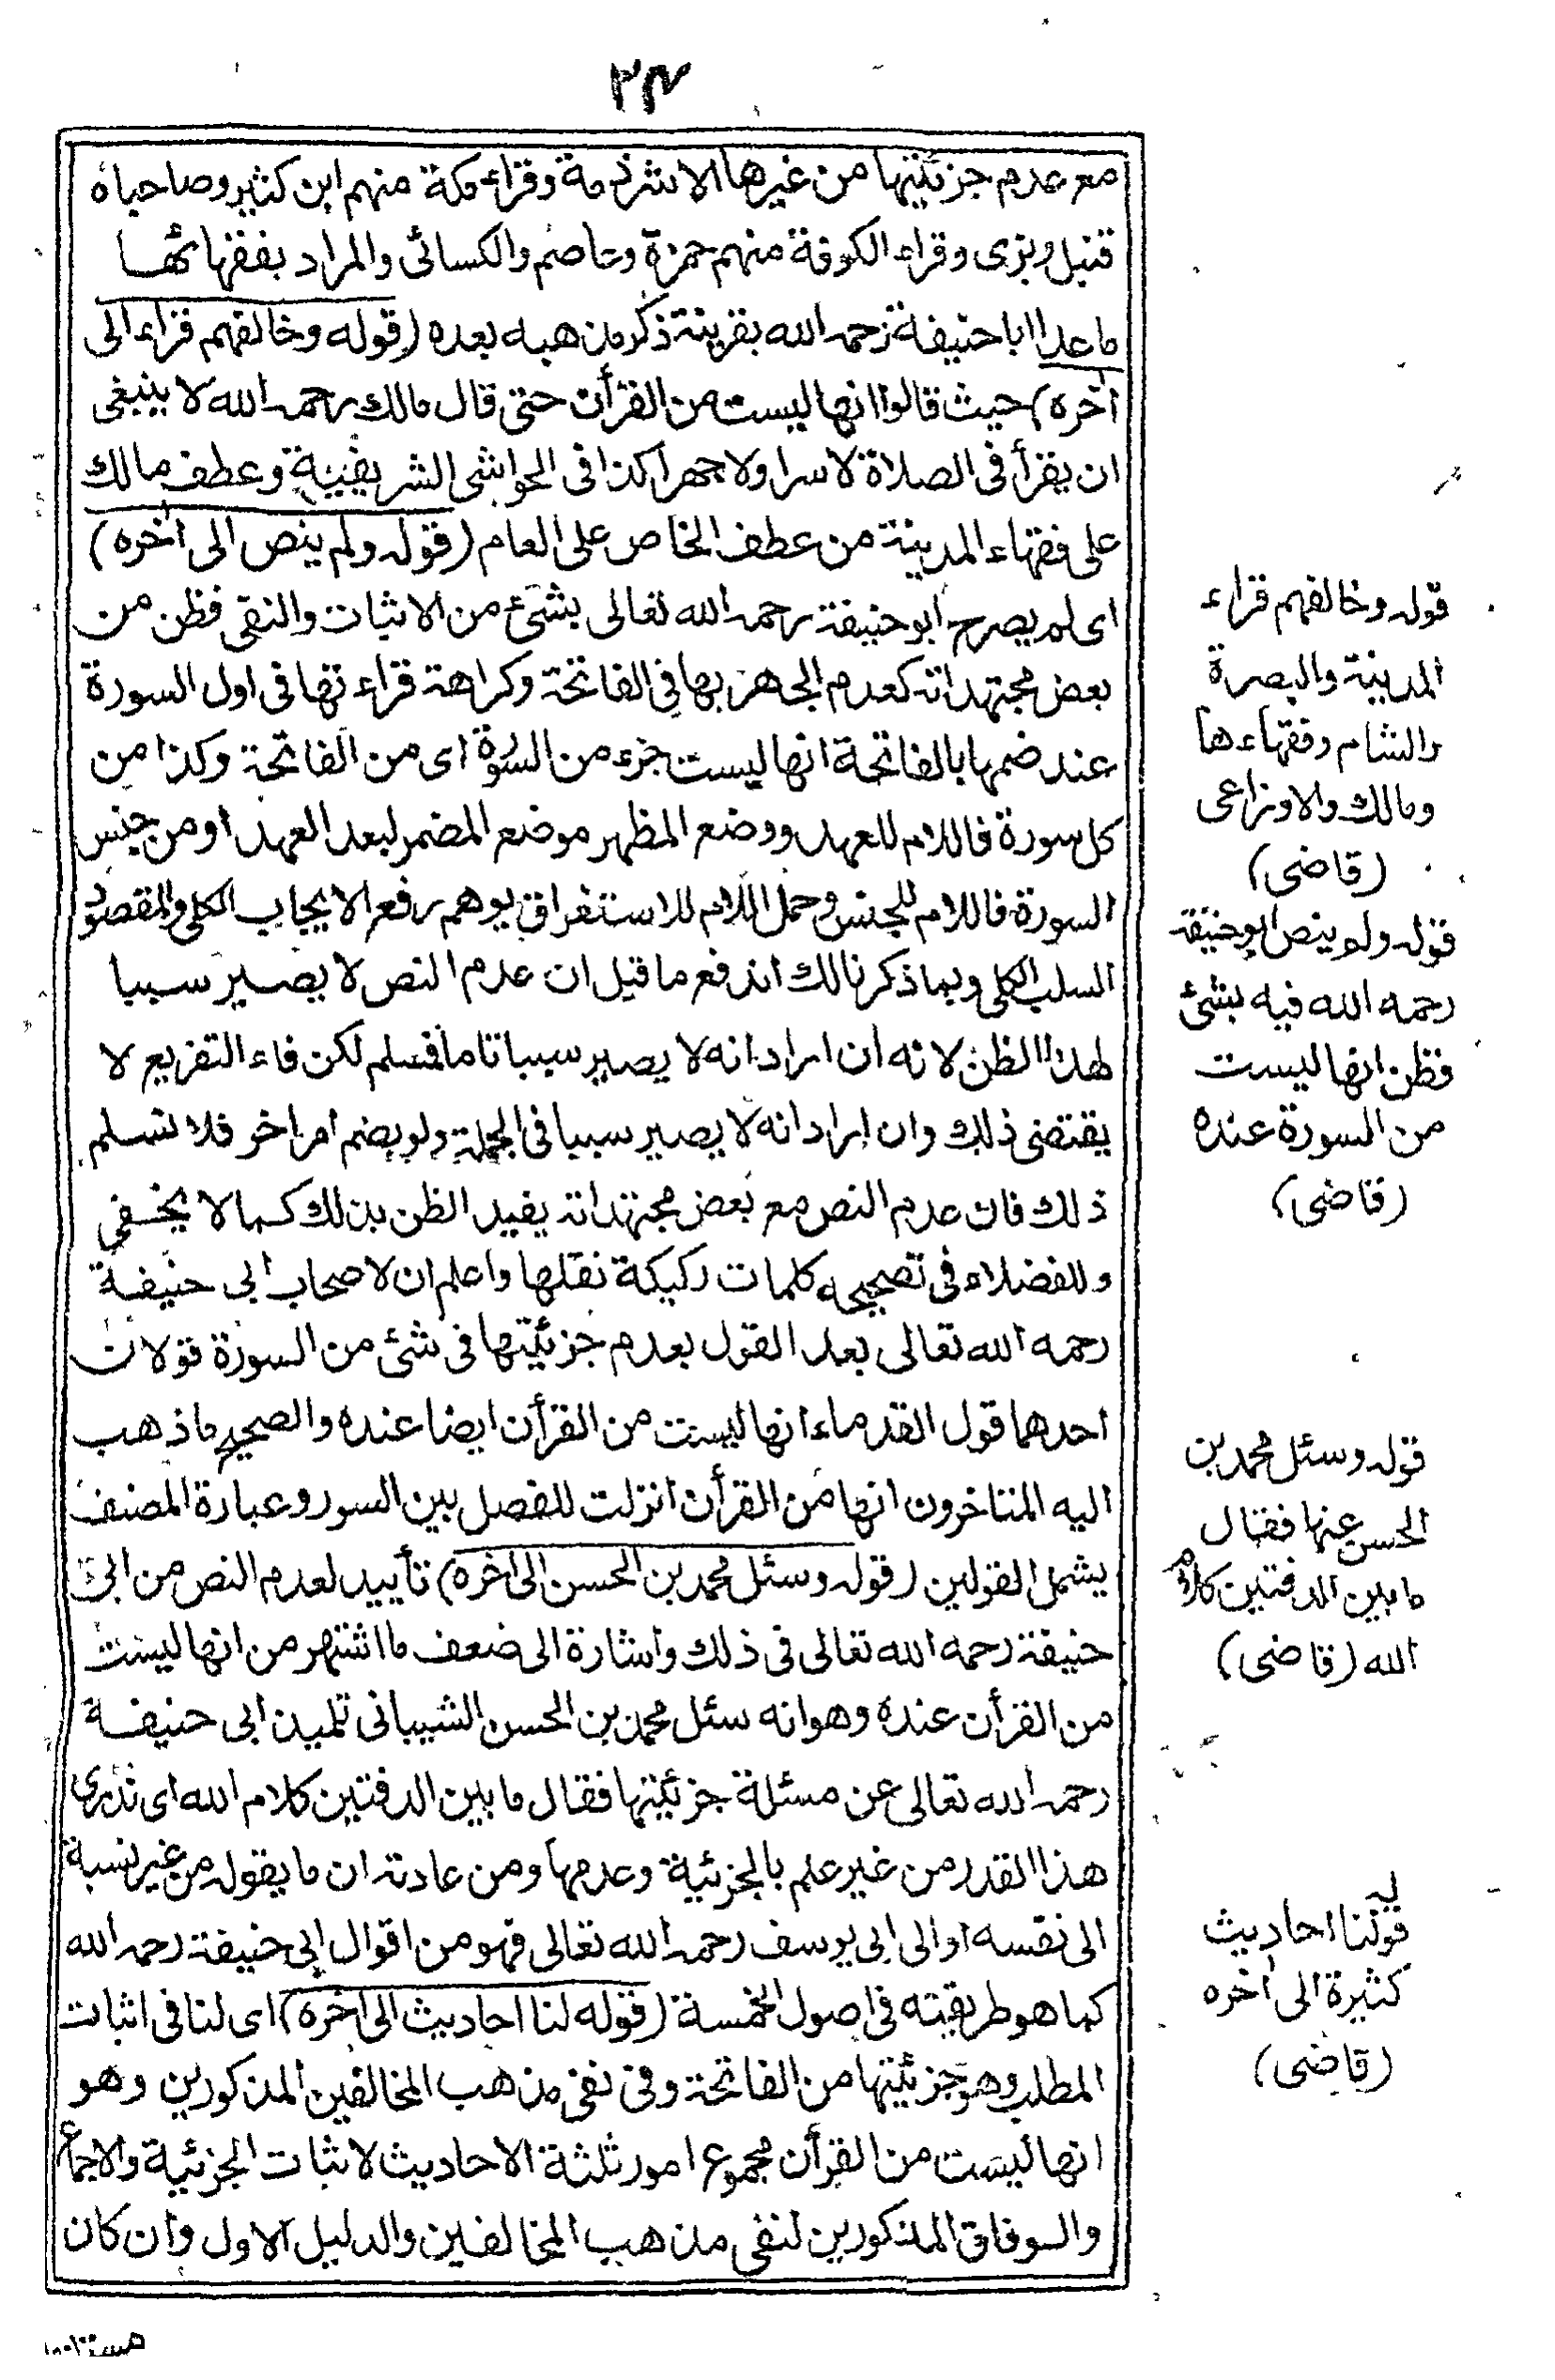 ٢٣
مع عدم جزئيتها من غيرها الا شرذمة وقراء مكة منهم ابن كثير وصاحباه
قنبل وبزى وقراء الكوفة منهم حمزة وعاصم والكسائى والمراد بفقهائها
ما عدا ابا حنيفة رحمه الله بقرينة ذكر مذهبه بعده (قوله وخالفهم قراء الى
اخره) حيث قالوا انها ليست من القرأن حتى قال مالك رحمه الله لا ينبغى
ان يقرأ فى الصلاة لا سرا ولا جهرا كذا فى الحواشى الشريفية وعطف مالك
على فقهاء المدينة من عطف الخاص على العام (قوله ولم ينص الى اخره)
اى لم يصرح ابو حنيفة رحمه الله تعالى بشئ من الاثبات والنفى فظن من
بعض مجتهداته كعدم الجهر بها فى الفاتحة وكراهة قراءتها فى اول السورة
عند ضمها بالفاتحة انها ليست جزء من السورة اى من الفاتحة وكذا من
كل سورة فاللام للعهد ووضع المظهر موضع المضمر لبعد العهد او من جنس
السورة فاللام للجنس وحمل اللام للاستغراق يوهم رفع الايجاب الكلى والمقصود
السلب الكلى وبما ذكرنا لك اندفع ما قيل ان عدم النص لا يصير سببا
لهذا الظن لانه ان اراد انه لا يصير سببا تاما فمسلم لكن فاء التفريع لا
يقتضى ذلك وان اراد انه لا يصير سببا فى الجملة ولو بضم امر اخر فلا نسلم
ذلك فان عدم النص مع بعض مجتهداته يفيد الظن بذلك كما لا يخفى
وللفضلاء فى تصحيحه كلمات ركيكة نقلها واعلم ان لاصحاب ابى حنيفة
رحمه الله تعالى بعد القول بعدم جزئيتها فى شئ من السورة قولان
احدهما قول القدماء انها ليست من القرأن ايضا عنده والصحيح ما ذهب
اليه المتاخرون انها من القرأن انزلت للفصل بين السور وعبارة المصنف
يشمل القولين (قوله وسئل محمد بن الحسن الى اخره) تأييد لعدم النص من ابى
حنيفة رحمه الله تعالى فى ذلك واشارة الى ضعف ما اشتهر من انها ليست
من القرأن عنده وهو انه سئل محمد بن الحسن الشيبانى تلميذ ابى حنيفة
رحمه الله تعالى عن مسئلة جزئيتها فقال ما بين الدفتين كلام الله اى ندرى
هذا القدر من غير علم بالجزئية وعدمها ومن عادته ان ما يقوله من غير نسبة
الى نفسه او الى ابى يوسف رحمه الله تعالى فهو من اقوال ابى حنيفة رحمه الله
كما هو طريقته فى اصول الخمسة (قوله لنا احاديث الى اخره) اى لنا فى اثبات
المطلب وهو جزئيتها من الفاتحة وفى نفى مذهب المخالفين المذكورين وهو
انها ليست من القرأن مجموع امور ثلثة الاحاديث لاثبات الجزئية والاجماع
والوفاق المذكورين لنفى مذهب المخالفين والدليل الاول وان كان
قوله وخالفهم قراء
المدينة والبصرة
والشام وفقهاءها
ومالك والاوزاعى
(قاضى)
قوله ولم ينص ابو حنيفة
رحمه الله فيه بشئ
فظن انها ليست
من السورة عنده
(قاضى)
قوله وسئل محمد بن
الحسن عنها فقال
ما بين الدفتين كلام
الله (قاضى)
قوله لنا احاديث
كثيرة الى اخره
(قاضى)